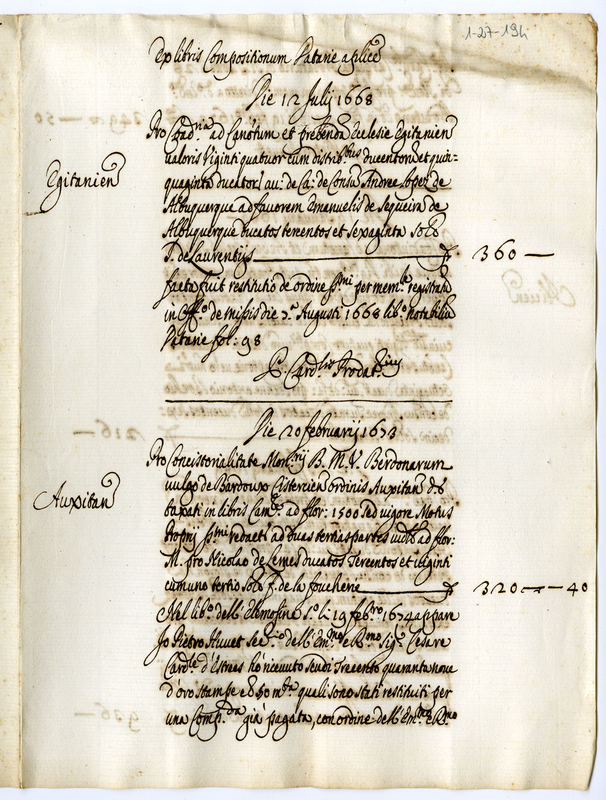 1-27-194
Ex libris Compositionum Datarie aplice
Die 12 Julij 1668
Pro Coad.ria ad Canotum et prebenda Ecclesie Egitanien
Egitanien
valoris Viginti quatuor cum distrib.bus ducentorum et quin-
quaginta ducator. au: de Ca: de Consu Andrea Lopez de
Albuquerque ad favorem Emanuelis de Sequeira de
Albuquerque ducatos tercentos et sexaginta
P. de Laurentijs 360 —
facta fuit restitutio de ordine SSmi per mem.le registratu
in Off.o de missis die 7.a Augusti 1668 lib.o notabiliu
Datarie fol: 98
P. Card.lis Prodat.rius
Die 20 februarij 1673
Pro Concistorialitate Mon.rij B. M. V. Berdonarum
Auxitan
vulgo de Bardoux Cistercien ordinis Auxitan
taxati in libris Cam.e ad flor: 1500 sed vigore Motus
Proprij SSmi reducti ad duas tertias partes ad flor:
M. pro Nicolao de Lemes ducatos Tercentos et viginti
cum uno tertio f. de la foucherie 320 — 40
Nel lib.o dell'Elemosine s.o li 19 feb.ro 1674 appare
Jo Pietro Huvet Sec.rio dell'Em.mo e R.mo Sig.r Cesare
Card.le d'Estrees ho ricevuto scudi Trecento quaranta nove
d'oro stampe e 50 m.ta quali sono stati restituiti per
una Comp.da già pagata, con ordine dell'Em.mo e R.mo